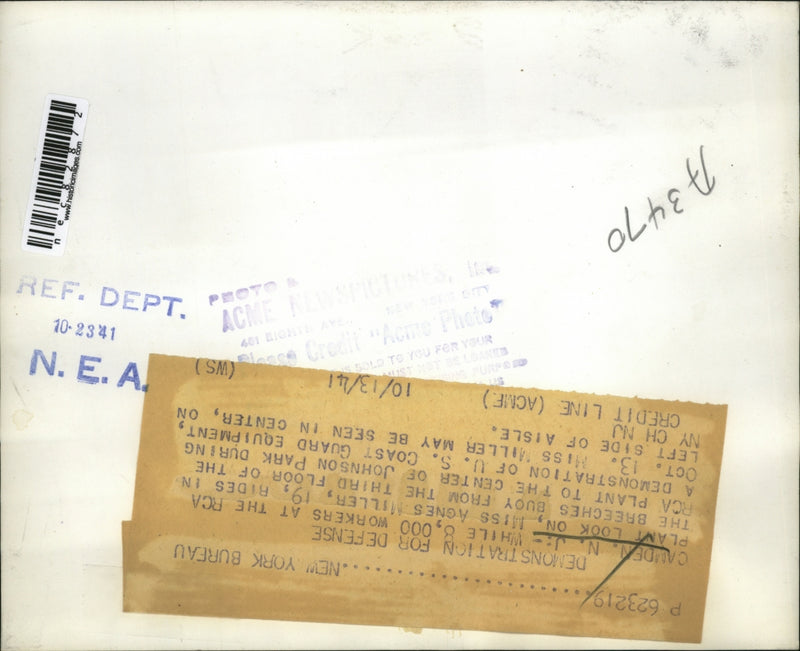 nec82872
www.historicimages.com
A3470
REF. DEPT.
10-23 41
N. E. A.
PHOTO
ACME NEWSPICTURES, INC
461 EIGHTH AVE., NEW YORK CITY
Please Credit "Acme Photo"
SOLD TO YOU FOR YOUR
MUST NOT BE LOANED
PURPOSE
US
P 623219/....................NEW YORK BUREAU
DEMONSTRATION FOR DEFENSE
CAMDEN, N. J.:- WHILE 8,000 WORKERS AT THE RCA
PLANT LOOK ON, MISS AGNES MILLER, 19, RIDES IN
THE BREECHES BUOY FROM THE THIRD FLOOR OF THE
RCA PLANT TO THE CENTER OF JOHNSON PARK DURING
A DEMONSTRATION OF U. S. COAST GUARD EQUIPMENT,
OCT. 13. MISS MILLER MAY BE SEEN IN CENTER, ON
LEFT SIDE OF AISLE.
NY CH NJ
CREDIT LINE (ACME) 10/13/41 (WS)